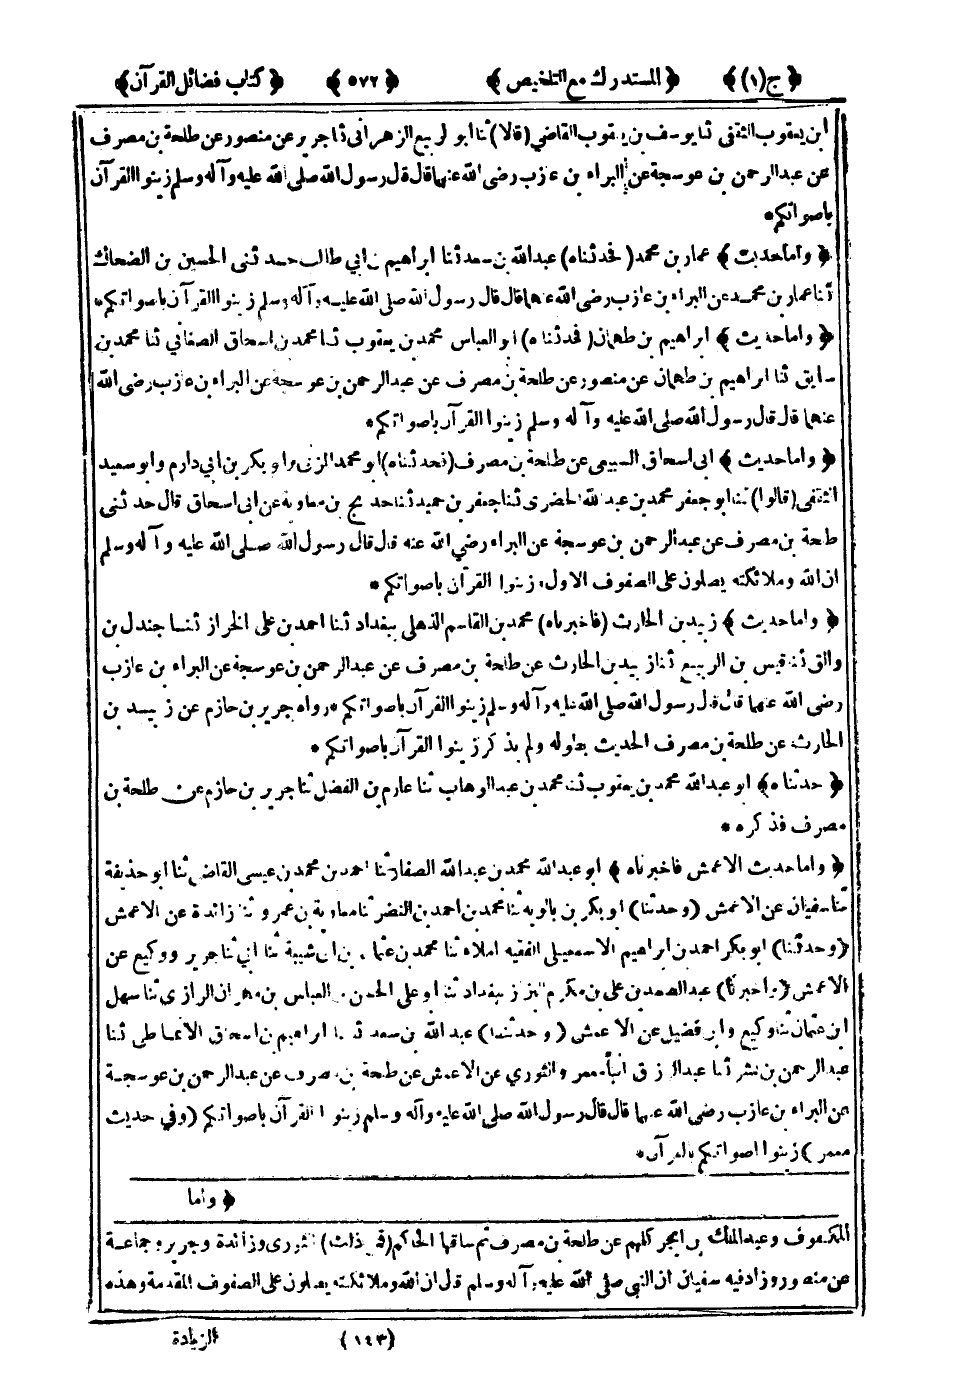 ﴿ج(١)﴾ ﴿المستدرك مع التلخيص﴾ ﴿٥٧٢﴾ ﴿كتاب فضائل القرآن﴾
ابن يعقوب الثقفى ثنا يوسف بن يعقوب القاضي (قالا) ثنا ابو الربيع الزهرانى ثنا جرير عن منصور عن طلحة بن مصرف
عن عبدالرحمن بن عوسجة عن البراء بن عازب رضى الله عنهما قال قال رسول الله صلى الله عليه وآله وسلم زينوا القرآن
باصواتكم*
﴿واما حديث﴾ عمار بن محمد (فحدثناه) عبدالله بن سعد ثنا ابراهيم بن ابي طالب حدثنى الحسين بن الضحاك
ثنا عمار بن محمد عن البراء بن عازب رضى الله عنهما قال قال رسول الله صلى الله عليه وآله وسلم زينوا القرآن باصواتكم*
﴿واما حديث﴾ ابراهيم بن طهمان (فحدثناه) ابو العباس محمد بن يعقوب ثنا محمد بن اسحاق الصغاني ثنا محمد بن
سابق ثنا ابراهيم بن طهمان عن منصور عن طلحة بن مصرف عن عبدالرحمن بن عوسجة عن البراء بن عازب رضى الله
عنهما قال قال رسول الله صلى الله عليه وآله وسلم زينوا القرآن باصواتكم*
﴿واما حديث﴾ ابى اسحاق السبيعى عن طلحة بن مصرف (فحدثناه) ابو محمد المزنى وابو بكر بن ابي دارم وابو سعيد
الثقفى (قالوا) ثنا ابو جعفر محمد بن عبدالله الحضرى ثنا جعفر بن حميد ثنا حديج بن معاوية عن ابى اسحاق قال حدثنى
طلحة بن مصرف عن عبدالرحمن بن عوسجة عن البراء رضي الله عنه قال قال رسول الله صلى الله عليه وآله وسلم
ان الله وملائكته يصلون على الصفوف الاول، زينوا القرآن باصواتكم*
﴿واما حديث﴾ زبيد بن الحارث (فاخبرناه) محمد بن القاسم الذهلى ببغداد ثنا احمد بن على الخزاز ثنا جندل بن
والق ثنا قيس بن الربيع ثنا زبيد بن الحارث عن طلحة بن مصرف عن عبدالرحمن بن عوسجة عن البراء بن عازب
رضى الله عنهما قال قال رسول الله صلى الله عليه وآله وسلم زينوا القرآن باصواتكم* رواه جرير بن حازم عن زبيد بن
الحارث عن طلحة بن مصرف الحديث بطوله ولم يذكر زينوا القرآن باصواتكم*
﴿حدثناه﴾ ابو عبدالله محمد بن يعقوب ثنا محمد بن عبدالوهاب ثنا عارم بن الفضل ثنا جرير بن حازم عن طلحة بن
مصرف فذكره*
﴿واما حديث الاعمش فاخبرناه﴾ ابو عبدالله محمد بن عبدالله الصفار ثنا احمد بن محمد بن عيسى القاضى ثنا ابو حذيفة
ثنا سفيان عن الاعمش (وحدثنا) ابو بكر بن بالويه ثنا محمد بن احمد بن النضر ثنا معاوية بن عمرو ثنا زائدة عن الاعمش
(وحدثنا) ابو بكر احمد بن ابراهيم الاسمعيلى الفقيه املاء ثنا محمد بن عثمان بن ابى شيبة ثنا ابي ثنا جرير ووكيع عن
الاعمش (واخبرنا) عبدالصمد بن على بن مكرم البزاز ببغداد ثنا ابو على الحسن بن العباس بن مهران الرازى ثنا سهل
ابن عثمان ثنا وكيع وابن فضيل عن الاعمش (وحدثنا) عبدالله بن سعد ثنا ابراهيم بن اسحاق الانماطى ثنا
عبدالرحمن بن بشر ثنا عبدالرزاق انبأ معمر والثوري عن الاعمش عن طلحة بن مصرف عن عبدالرحمن بن عوسجة
عن البراء بن عازب رضى الله عنهما قال قال رسول الله صلى الله عليه وآله وسلم زينوا القرآن باصواتكم (وفي حديث
معمر) زينوا اصواتكم بالقرآن*
﴿واما
المكفوف وعبدالملك بن ابجر كلهم عن طلحة بن مصرف ثم ساقها الحاكم (فى ذلك) الثورى وزائدة وجرير وجماعة
عن منصور وزاد فيه سفيان ان النبي صلى الله عليه وآله وسلم قال ان الله وملائكته يصلون على الصفوف المقدمة وهذه
(١٤٣) الزيادة